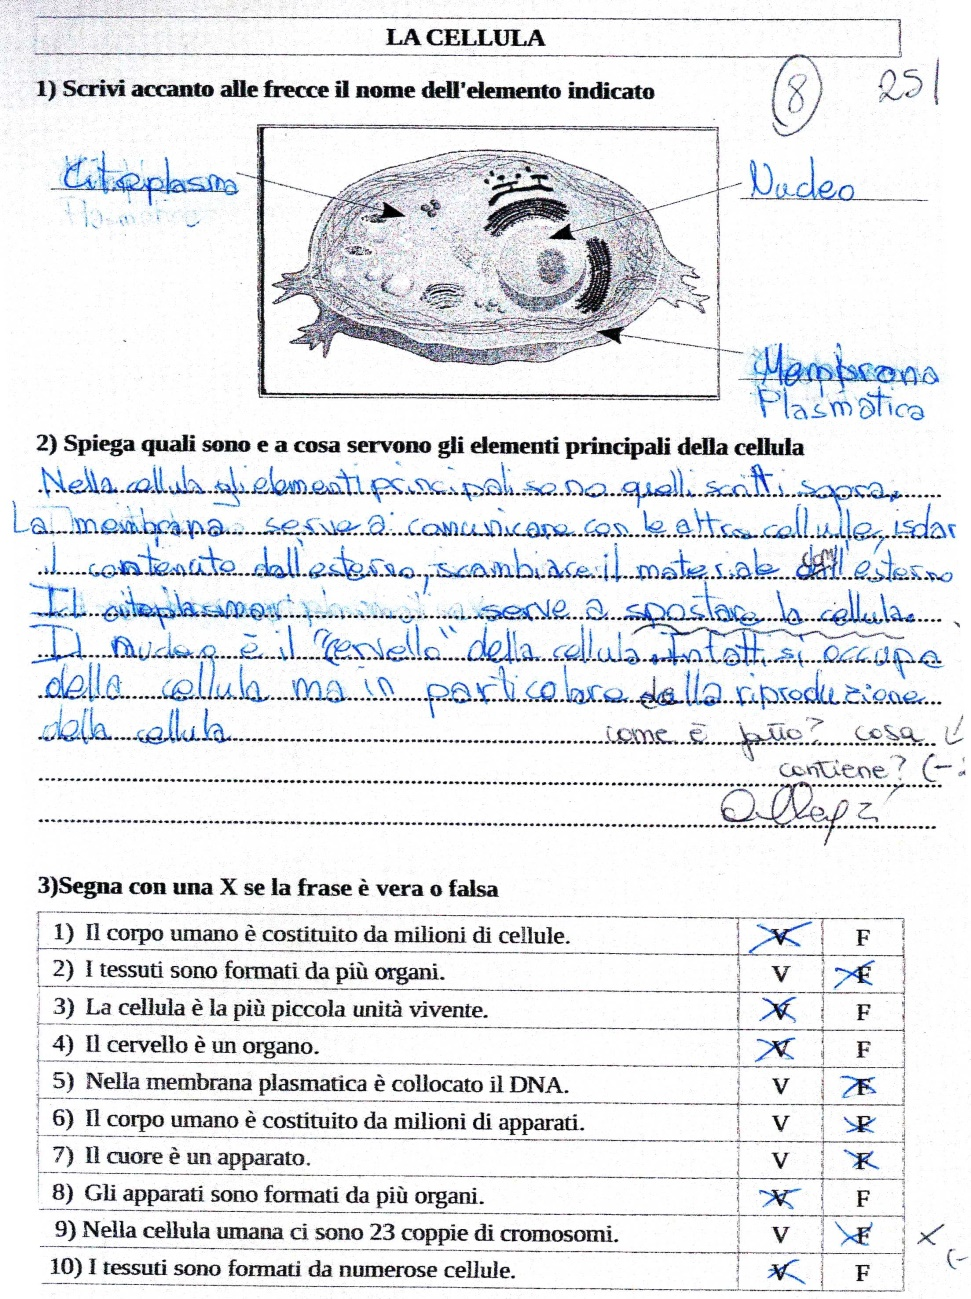 LA CELLULA
1) Scrivi accanto alle frecce il nome dell'elemento indicato
8 25
Citoplasma
Nucleo
Plasmatica
Membrana
Plasmatica
2) Spiega quali sono e a cosa servono gli elementi principali della cellula
Nella cellula gli elementi principali sono quelli scritti sopra.
La membrana serve a comunicare con le altre cellulle, isolar
il contenuto dall'esterno, scambiare il materiale dall'esterno
Il citoplasma serve a spostare la cellula.
Il nucleo è il "cervello" della cellula. Infatti si occupa
della cellula ma in particolare della riproduzione
della cellula
come è fatto? cosa
contiene? (-
3)Segna con una X se la frase è vera o falsa
1) Il corpo umano è costituito da milioni di cellule. V F
2) I tessuti sono formati da più organi. V F
3) La cellula è la più piccola unità vivente. V F
4) Il cervello è un organo. V F
5) Nella membrana plasmatica è collocato il DNA. V F
6) Il corpo umano è costituito da milioni di apparati. V F
7) Il cuore è un apparato. V F
8) Gli apparati sono formati da più organi. V F
9) Nella cellula umana ci sono 23 coppie di cromosomi. V F X
(-
10) I tessuti sono formati da numerose cellule. V F